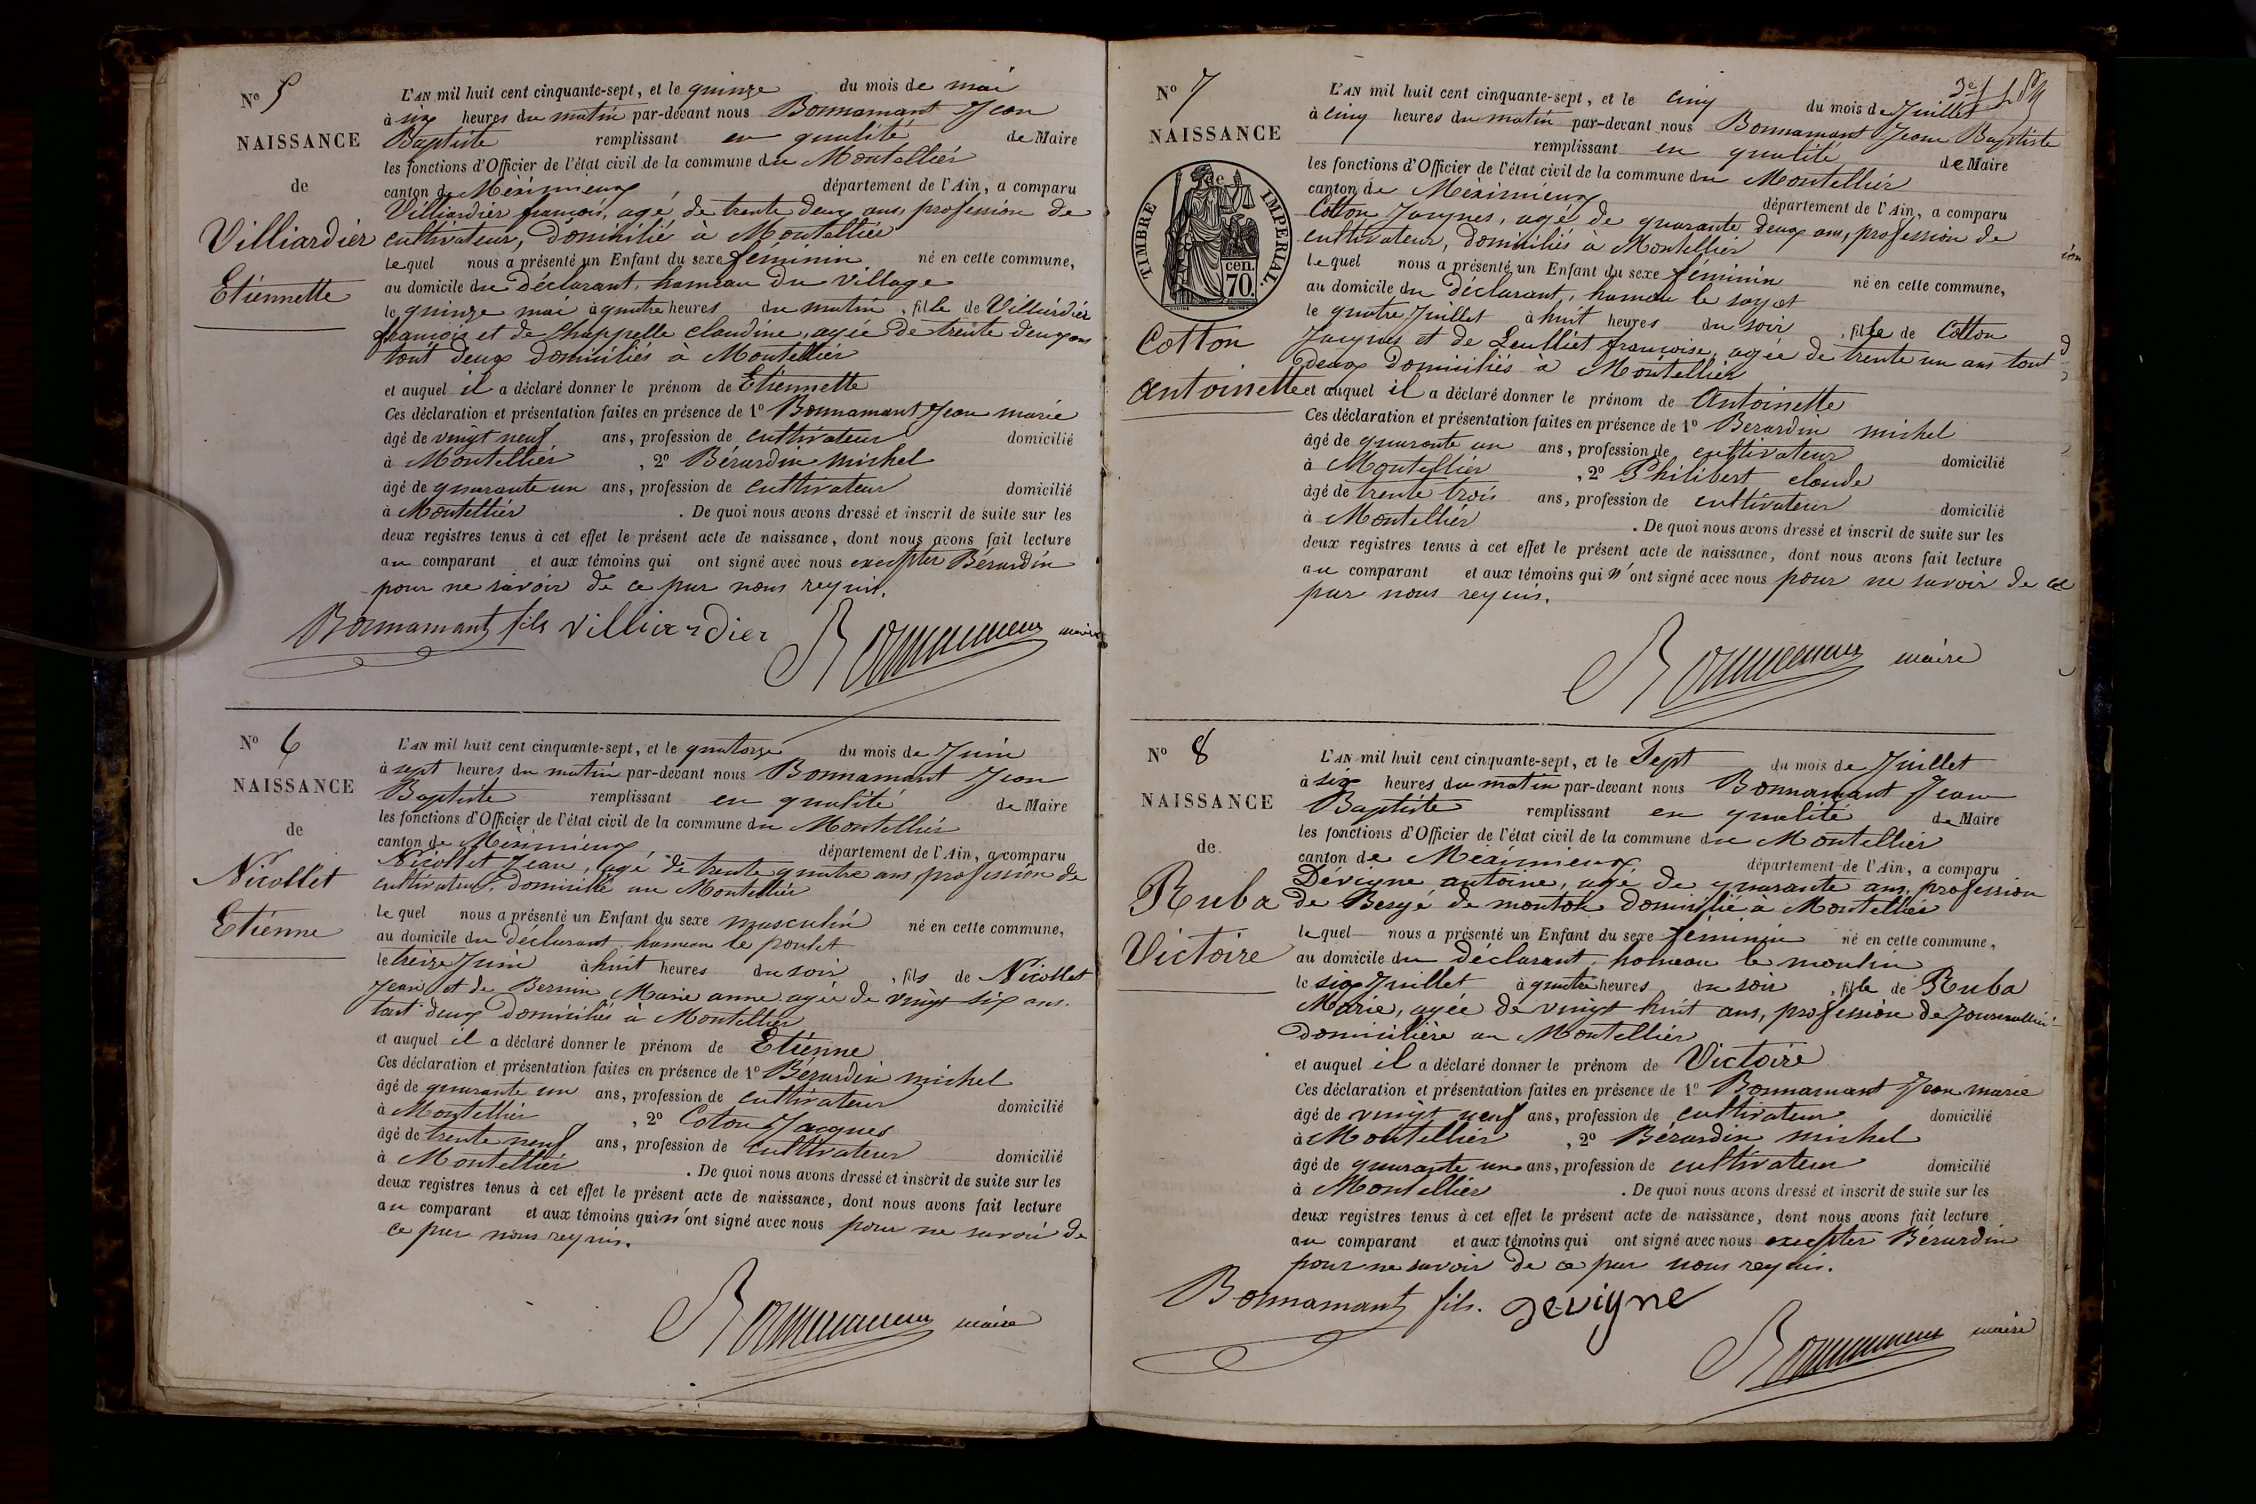 N° 5
NAISSANCE
de
Villiardier
Etiennette
L'AN mil huit cent cinquante-sept, et le quinze du mois de mai
à six heures du matin par-devant nous Bonnamant Jean
Baptiste remplissant en qualité de Maire
les fonctions d'Officier de l'état civil de la commune du Montellier
canton de Méximieux département de l'Ain, a comparu
Villiardier françois, agé de trente deux ans, profession de
cultivateur, domicilié à Montellier
lequel nous a présenté un Enfant du sexe féminin né en cette commune,
au domicile du déclarant, hameau du village
le quinze mai à quatre heures du matin, fille de Villiardier
françois et de Chappelle claudine, agée de trente deux ans
tout deux domiciliés à Montellier
et auquel il a déclaré donner le prénom de Etiennette
Ces déclaration et présentation faites en présence de 1° Bonnamant Jean marie
âgé de vingt neuf ans, profession de cultivateur domicilié
à Montellier, 2° Bérardin michel
âgé de quarante un ans, profession de cultivateur domicilié
à Montellier. De quoi nous avons dressé et inscrit de suite sur les
deux registres tenus à cet effet le présent acte de naissance, dont nous avons fait lecture
au comparant et aux témoins qui ont signé avec nous excepter Bérardin
pour ne savoir de ce par nous requis.
Bonnamant fils Villiardier Bonnamant maire
N° 6
NAISSANCE
de
Nicollet
Etienne
L'AN mil huit cent cinquante-sept, et le quatorze du mois de Juin
à sept heures du matin par-devant nous Bonnamant Jean
Baptiste remplissant en qualité de Maire
les fonctions d'Officier de l'état civil de la commune du Montellier
canton de Méximieux département de l'Ain, a comparu
Nicollet Jean, agé de trente quatre ans, profession de
cultivateur, domicilié au Montellier
lequel nous a présenté un Enfant du sexe masculin né en cette commune,
au domicile du déclarant, hameau le poulet
le treize Juin à huit heures du soir, fils de Nicollet
Jean et de Bernin Marie anne agée de vingt six ans.
tout deux domiciliés à Montellier
et auquel il a déclaré donner le prénom de Etienne
Ces déclaration et présentation faites en présence de 1° Bérardin michel
âgé de quarante un ans, profession de cultivateur domicilié
à Montellier, 2° Coton Jacques
âgé de trente neuf ans, profession de cultivateur domicilié
à Montellier. De quoi nous avons dressé et inscrit de suite sur les
deux registres tenus à cet effet le présent acte de naissance, dont nous avons fait lecture
au comparant et aux témoins qui n'ont signé avec nous pour ne savoir de
ce par nous requis.
Bonnamant maire
N° 7
NAISSANCE
de
TIMBRE IMPERIAL.
cen. 70.
Cotton
Antoinette
L'AN mil huit cent cinquante-sept, et le cinq du mois de Juillet
à cinq heures du matin par-devant nous Bonnamant Jean Baptiste
remplissant en qualité de Maire
les fonctions d'Officier de l'état civil de la commune du Montellier
canton de Méximieux département de l'Ain, a comparu
Cotton Jacques, agé de quarante deux ans, profession de
cultivateur, domiciliés à Montellier
lequel nous a présenté un Enfant du sexe féminin né en cette commune,
au domicile du déclarant, hameau le
le quatre Juillet à huit heures du soir, fille de Cotton
Jacques et de françoise, agée de trente un ans tout
deux domiciliés à Montellier
et auquel il a déclaré donner le prénom de Antoinette
Ces déclaration et présentation faites en présence de 1° Berardin michel
âgé de quarante un ans, profession de cultivateur domicilié
à Montellier, 2° Philibert claude
âgé de trente trois ans, profession de cultivateur domicilié
à Montellier. De quoi nous avons dressé et inscrit de suite sur les
deux registres tenus à cet effet le présent acte de naissance, dont nous avons fait lecture
au comparant et aux témoins qui n'ont signé avec nous pour ne savoir de ce
par nous requis.
Bonnamant maire
N° 8
NAISSANCE
de
Ruba
Victoire
L'AN mil huit cent cinquante-sept, et le Sept du mois de Juillet
à six heures du matin par-devant nous Bonnamant Jean
Baptiste remplissant en qualité de Maire
les fonctions d'Officier de l'état civil de la commune du Montellier
canton de Méximieux département de l'Ain, a comparu
Dévigne antoine, agé de quarante ans, profession
de Bergé de mouton domicilié à Montellier
lequel nous a présenté un Enfant du sexe féminin né en cette commune,
au domicile du déclarant, hameau le moulin
le six Juillet à quatre heures du soir, fille de Ruba
Marie, agée de vingt huit ans, profession de
domicilière au Montellier
et auquel il a déclaré donner le prénom de Victoire
Ces déclaration et présentation faites en présence de 1° Bonnamant Jean marie
âgé de vingt neuf ans, profession de cultivateur domicilié
à Montellier, 2° Bérardin michel
âgé de quarante un ans, profession de cultivateur domicilié
à Montellier. De quoi nous avons dressé et inscrit de suite sur les
deux registres tenus à cet effet le présent acte de naissance, dont nous avons fait lecture
au comparant et aux témoins qui ont signé avec nous excepter Bérardin
pour ne savoir de ce par nous requis.
Bonnamant fils. devigne
Bonnamant maire